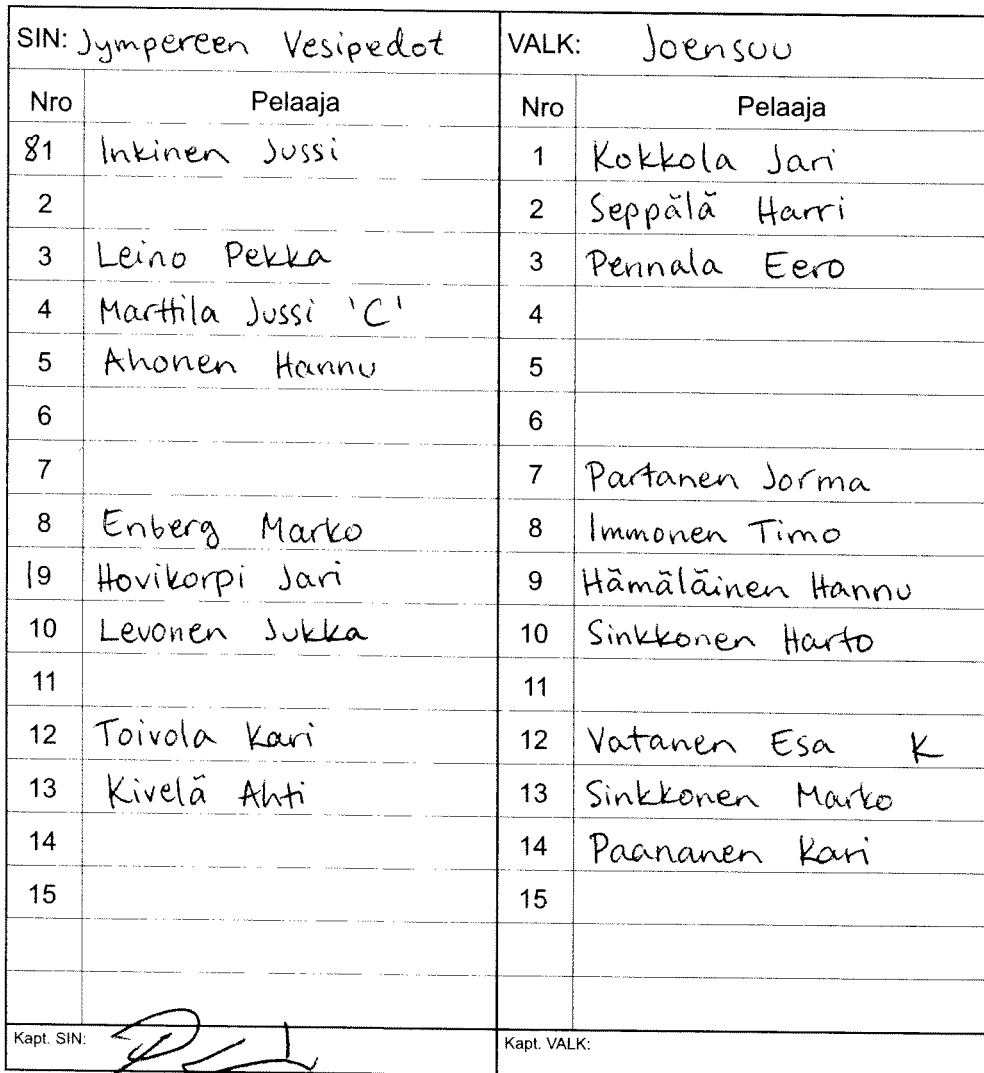 SIN: Jympereen Vesipedot
Nro Pelaaja
81 Inkinen Jussi
2
3 Leino Pekka
4 Marttila Jussi 'C'
5 Ahonen Hannu
6
7
8 Enberg Marko
19 Hovikorpi Jari
10 Levonen Jukka
11
12 Toivola Kari
13 Kivelä Ahti
14
15
Kapt. SIN:
VALK: Joensuu
Nro Pelaaja
1 Kokkola Jari
2 Seppälä Harri
3 Pennala Eero
4
5
6
7 Partanen Jorma
8 Immonen Timo
9 Hämäläinen Hannu
10 Sinkkonen Harto
11
12 Vatanen Esa K
13 Sinkkonen Marko
14 Paananen Kari
15
Kapt. VALK: